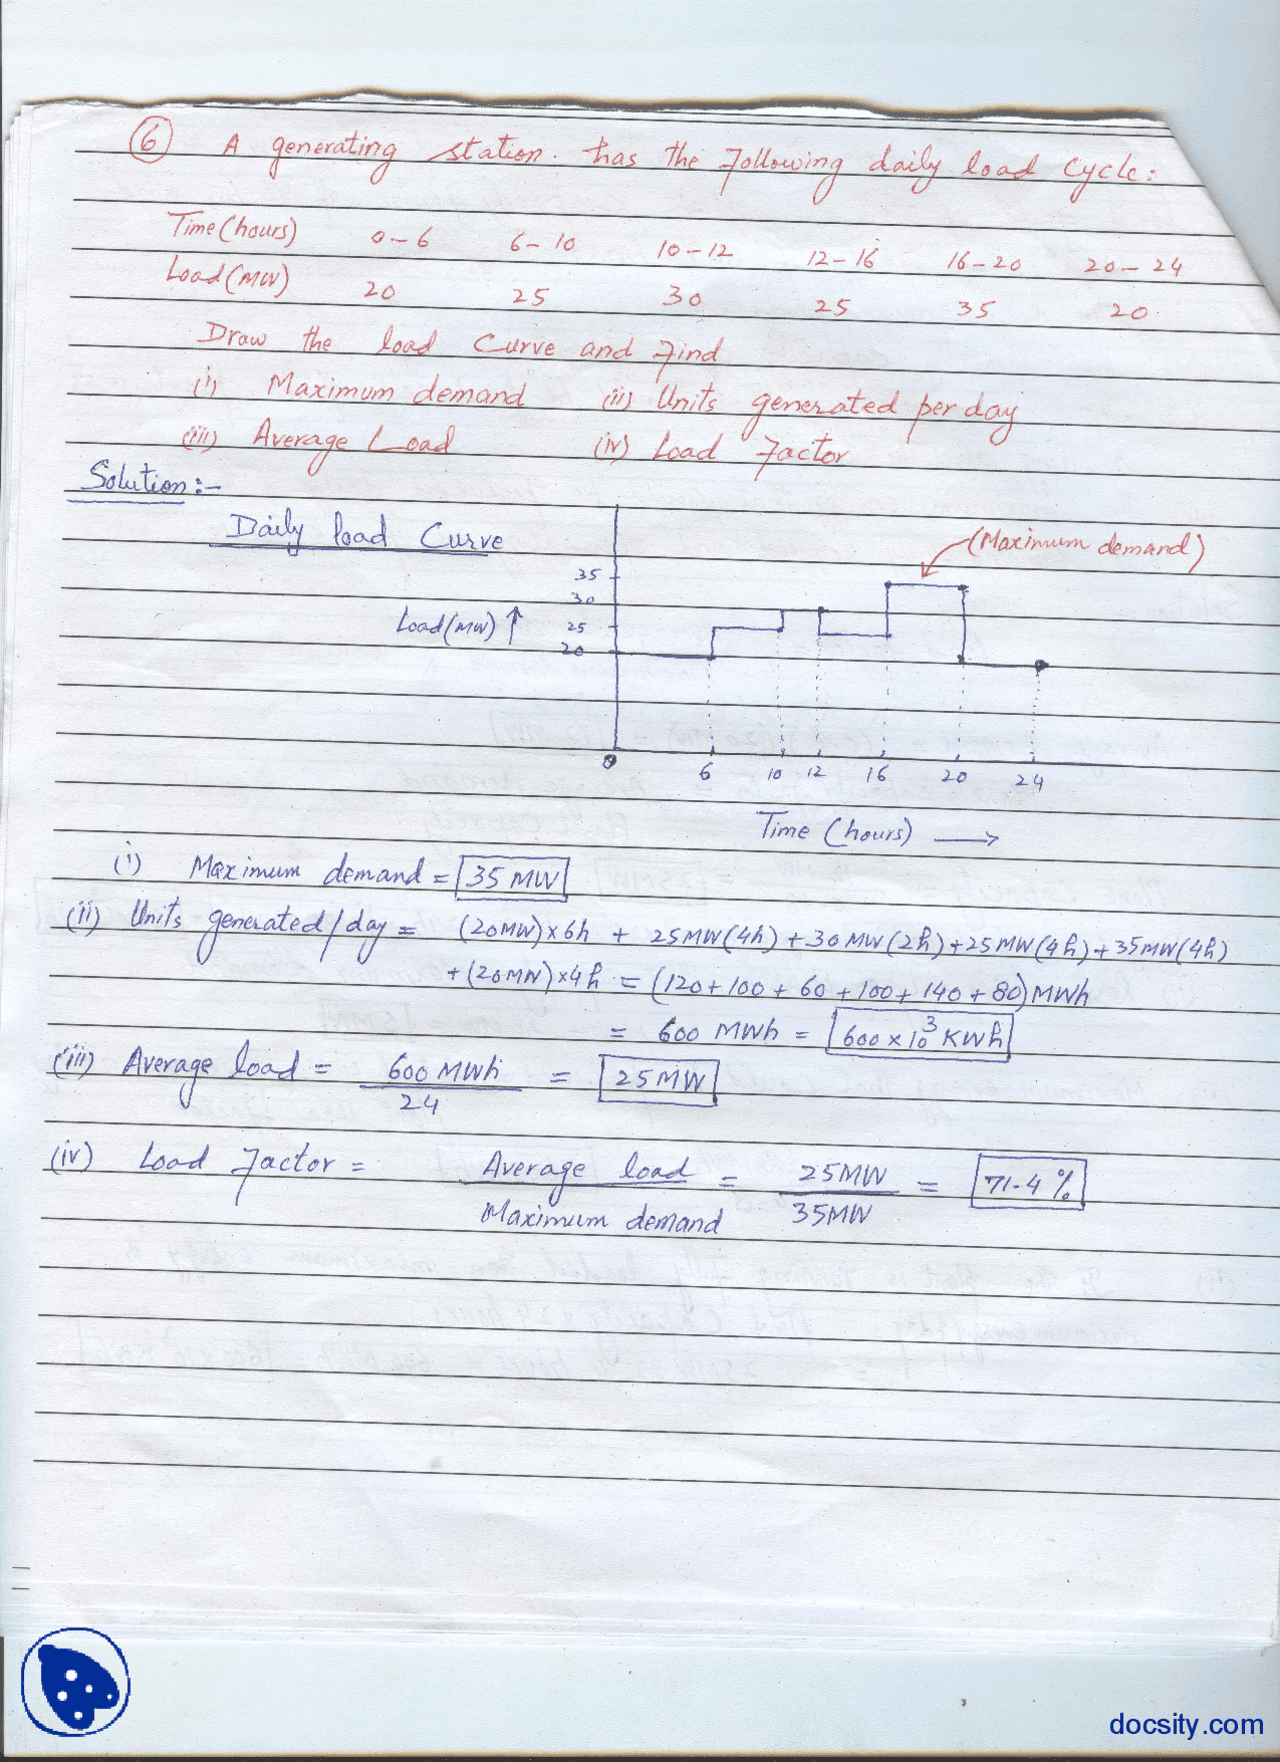 6 A generating station. has the following daily load cycle:
Time (hours) 0-6 6-10 10-12 12-16 16-20 20-24
Load (MW) 20 25 30 25 35 20.
Draw the load curve and find
(i) Maximum demand (ii) Units generated per day
(iii) Average Load (iv) Load Factor
Solution:-
Daily load Curve
(Maximum demand)
35
30
Load (MW) ↑ 25
20
0 6 10 12 16 20 24
Time (hours) →
(i) Maximum demand = 35 MW
(ii) Units generated/day = (20MW)×6h + 25MW(4h) + 30MW(2h) + 25MW(4h) + 35MW(4h)
+ (20MW)×4h = (120+100+60+100+140+80)MWh
= 600 MWh = 600×10³ KWh
(iii) Average load = 600 MWh / 24 = 25MW
(iv) Load Factor = Average load / Maximum demand = 25MW / 35MW = 71.4 %
docsity.com